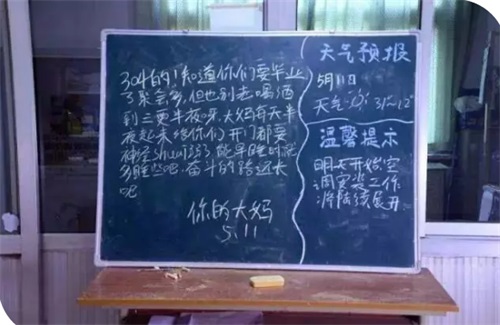 304的!知道你们要毕业
了聚会多,但也别老喝酒
到三更半夜呀,大妈每天半
夜起来给你们开门都要
神经shuai弱了能早睡时就
多睡些吧,奋斗的路还长
呢
你的大妈
5.11
天气预报
5月11日
天气
温馨提示
明天开始,空
调安装工作
将陆续展开